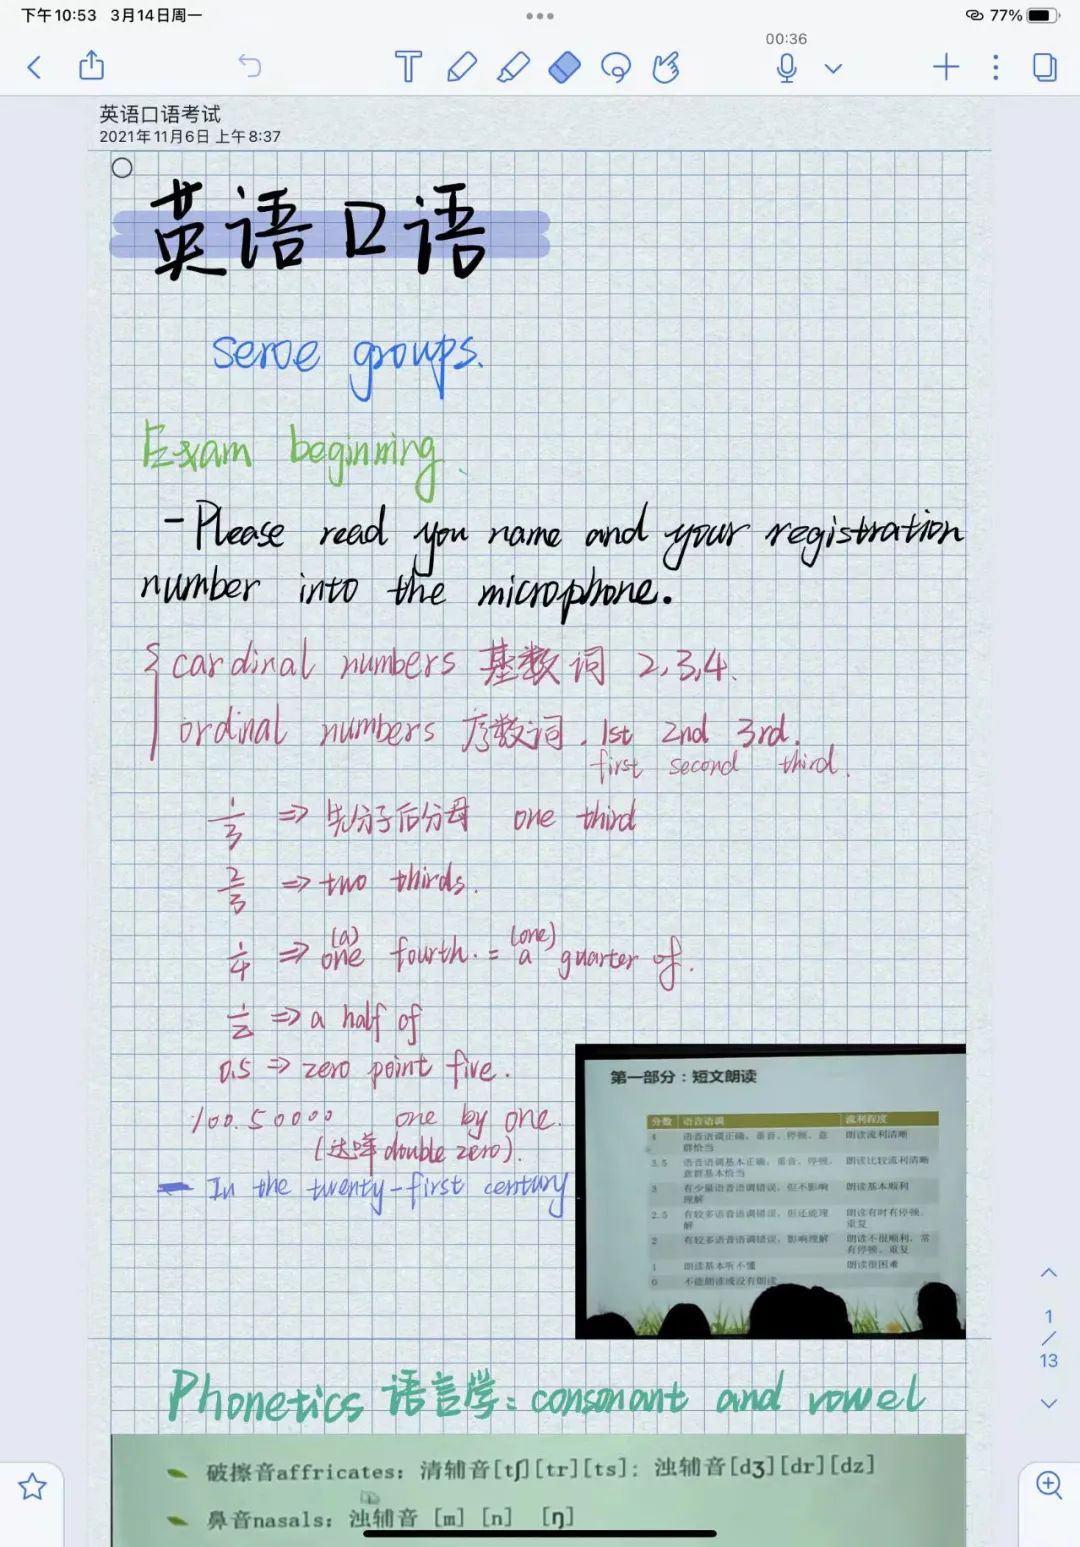 下午10:53 3月14日周一
77%
00:36
英语口语考试
2021年11月6日 上午8:37
英语口语
sense groups.
Exam beginning.
- Please read you name and your registration
number into the microphone.
cardinal numbers 基数词 2,3,4.
ordinal numbers 序数词. 1st 2nd 3rd.
first second third.
1/3 => 先分子后分母 one third
2/3 => two thirds.
(a) (one)
1/4 => one fourth. = a quarter of.
1/2 => a half of
0.5 => zero point five.
100.50000 one by one.
(达咩 double zero).
- In the twenty-first century
第一部分：短文朗读
分数 语音语调 流利程度
4 语音语调正确、重音、停顿、意群恰当 朗读流利清晰
3.5 语音语调基本正确、重音、停顿、意群基本恰当 朗读比较流利清晰
3 有少量语音语调错误，但不影响理解 朗读基本顺利
2.5 有较多语音语调错误，但还能理解 朗读有时有停顿、重复
2 有较多语音语调错误，影响理解 朗读不很顺利，常有停顿、重复
1 朗读基本听不懂 朗读很困难
0 不能朗读或没有朗读
1
/
13
Phonetics 语言学: consonant and vowel
破擦音affricates: 清辅音[tʃ][tr][ts]; 浊辅音[dʒ][dr][dz]
鼻音nasals: 浊辅音 [m] [n] [ŋ]